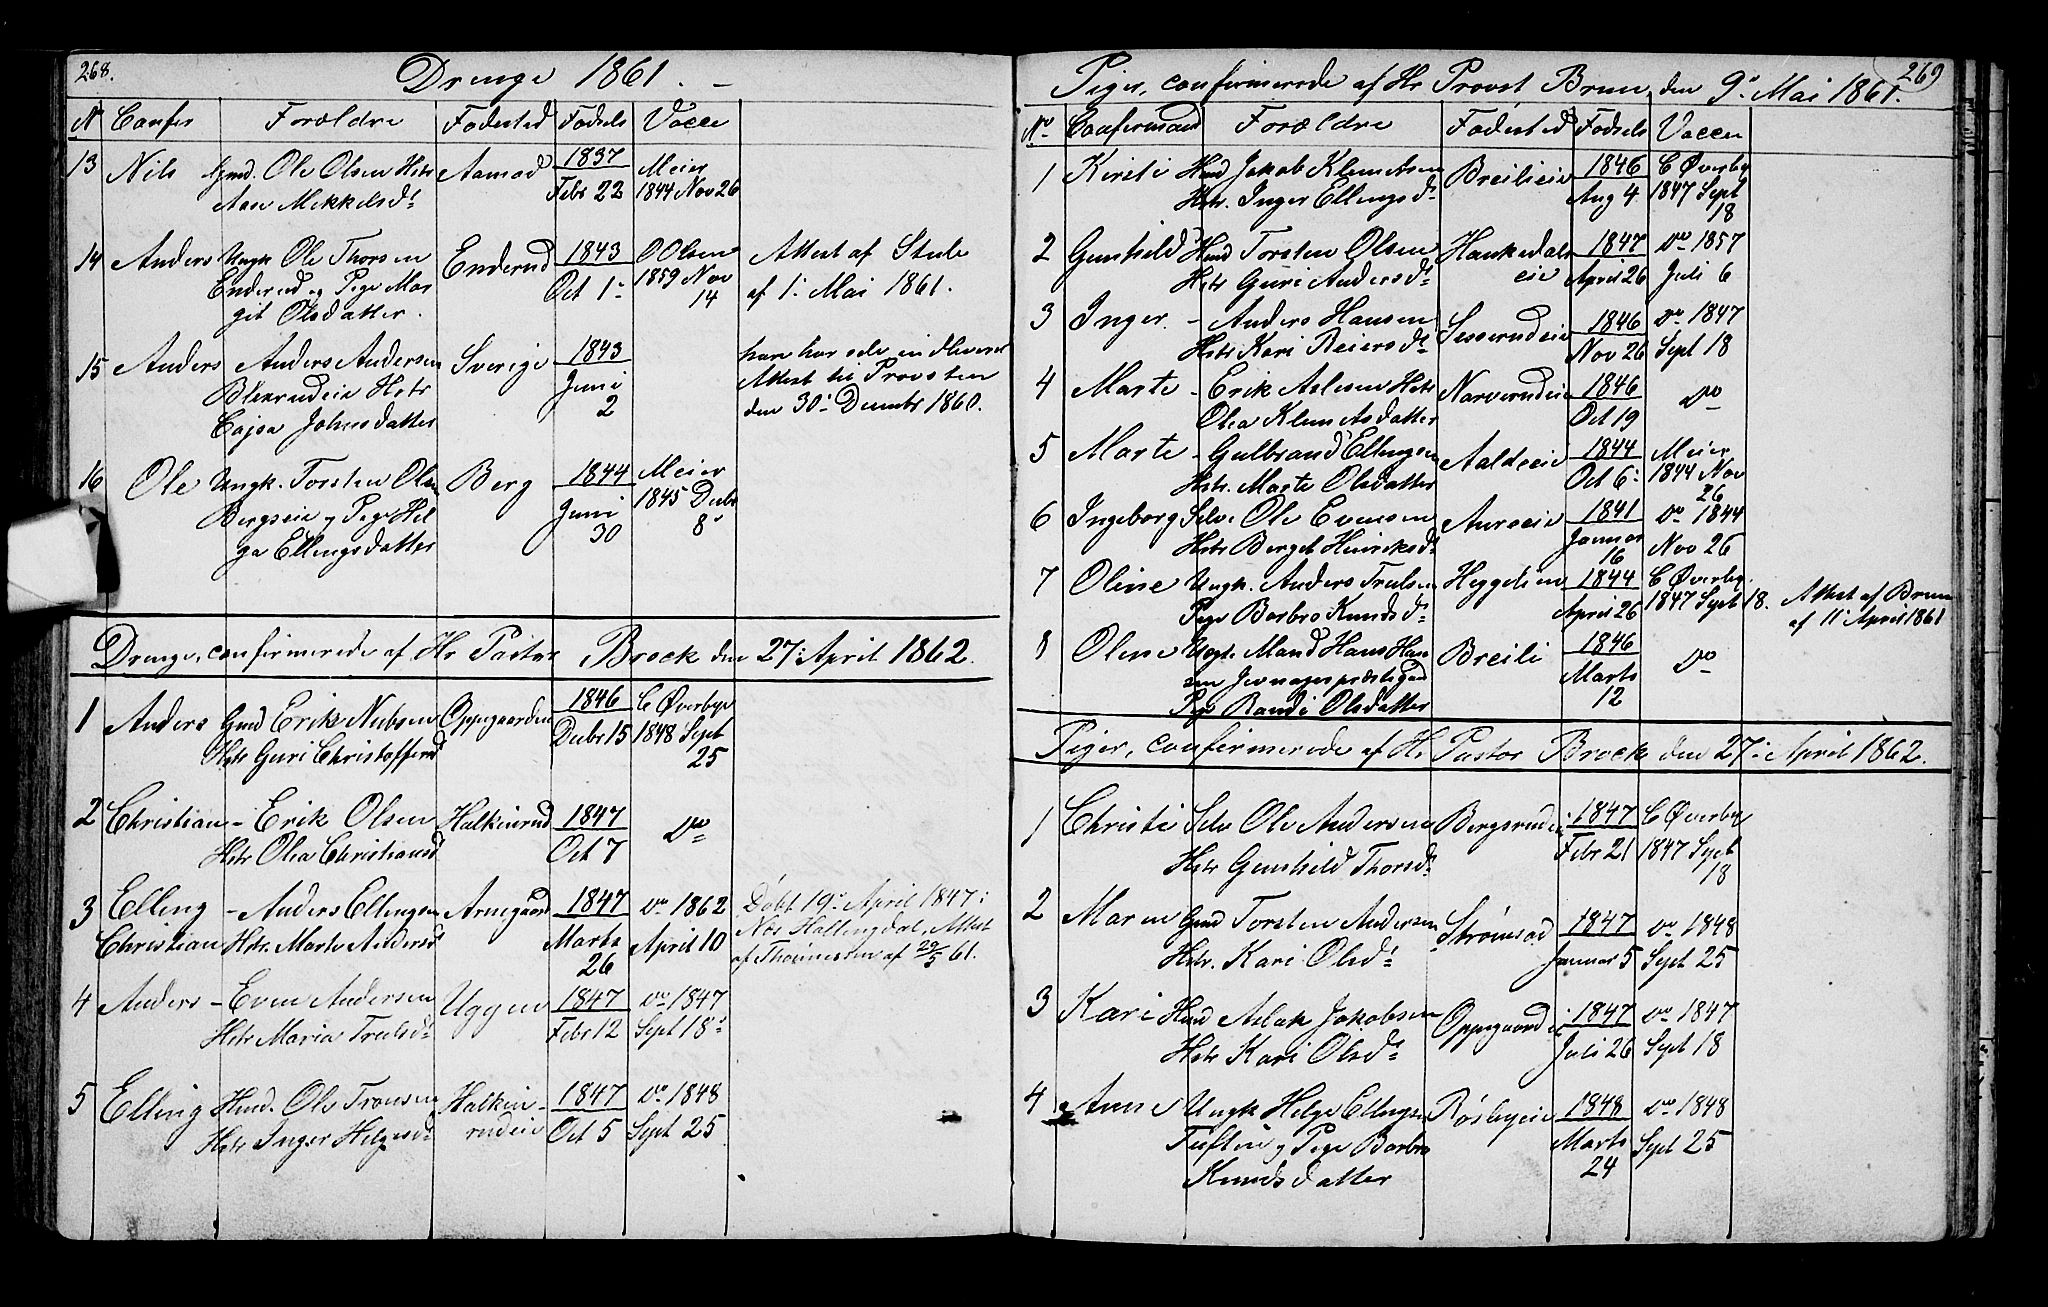 268.
Drenge 1861.
N Confir Forældre Fødested Fødsels Vacce
13 Nils Gmd. Ole Olsen Hstr Aamod 1837 Meier
Aase Mekkelsdr Febr 22 1844 Nov 26
14 Anders Ungk Ole Thorsen Enderud 1843 O Olsen Attest af Stub
Enderud og Pige Mar Oct 1: 1859 Nov af 1: Mai 1861.
git Olsdatter. 14
15 Anders Anders Andersen Sverige 1843 han har selv indleveret
Hstr Juni Attest til Provsten
Cajsa Johnsdatter 2 den 30: Decembr 1860.
16 Ole Ungk. Torsten Olsen Berg 1844 Meier
Bergseie og Pige Hel Juni 1845 Decbr
ga Ellingsdatter 30 8:
Drenge, confirmerede af Hr Pastor Brock den 27: April 1862.
1 Anders Gmd Erik Nubsen Oppegaarden 1846 C Øverbye
Hstr Guri Christoffersd Decbr 15 1848 Sept
25
2 Christian - Erik Olsen Halkinrud 1847 Do
Hstr Olea Christiansd Oct 7
3 Elling - Anders Ellingsen Arnegaard 1847 Do 1862 Døbt 19: April 1847 i
Christian Hstr. Marte Andersd Marts April 10 Næs Hallingdal, Attest
26 af 29/5 61.
4 Anders - Even Andersen Uggen 1847 Do 1847
Hstr Maria Trulsdr Febr 12 Sept 18:
5 Elling Hmd. Ole Tronsen Halkin- 1847 Do 1848
Hstr Inger Helgesd rudeie Oct 5 Sept 25
269
Piger, confirmerede af Hr Provst Brun, den 9: Mai 1861.
No Confirmand Forældre Fødested Fødsels Vaccen
1 Kirsti Hmd Jakob Klemetsen Breilieie 1846 C Øverby
Hstr. Inger Ellingsdr Aug 4 1847 Sept
18
2 Gunhild Hmd Torsten Olsen Haukedals 1847 Do 1857
Hstr Guri Andersdr eie April 26 Juli 6
3 Inger. - Anders Hansen Sesserudeie 1846 Do 1847
Hstr Kari Reiersdr Nov 26 Sept 18
4 Marte - Erik Aslesen Hstr Narverudeie 1846 Do
Olea Klemetsdatter Oct 19
5 Marte - Gulbrand Ellingsen Aaldseie 1844 Meier
Hstr. Marte Olsdatter Oct 6: 1844 Nov
26
6 Ingeborg Selve Ole Evensen Aurseie 1841 Do 1844
Hstr Berget Hinriksdr Januar Nov 26
16
7 Oline Ungk. Anders Trulsen Heggelien 1844 C Øverby. Attest af Brun
Pige Barbro Knudsdr April 26 1847 Sept 18. af 11: April 1861
8 Olene Ungt. Mand Hans Han Breili 1846 Do
sen Jevnagerpræstegaard Marts
Pige Randi Olsdatter 12
Piger, confirmerede af Hr Pastor Brock den 27: April 1862.
1 Christi Selv Ole Andersen Bergsrudei 1847 C Øverby
Hstr Gunhild Thorsdr Febr 21 1847 Sept
18
2 Maren Gmd Torsten Andersen Strømsod 1847 Do 1848
Hstr. Kari Olsdr Januar 5 Sept 25
3 Kari Hmd Aslak Jakobsen Oppegaardei 1847 Do 1847
Hstr Kari Olsdr Juli 26 Sept 18
4 Anne Ungk Helge Ellingsen Røsbyeie 1848 Do 1848
Tuftin og Pige Barbro Marts Sept 25
Knudsdatter 24